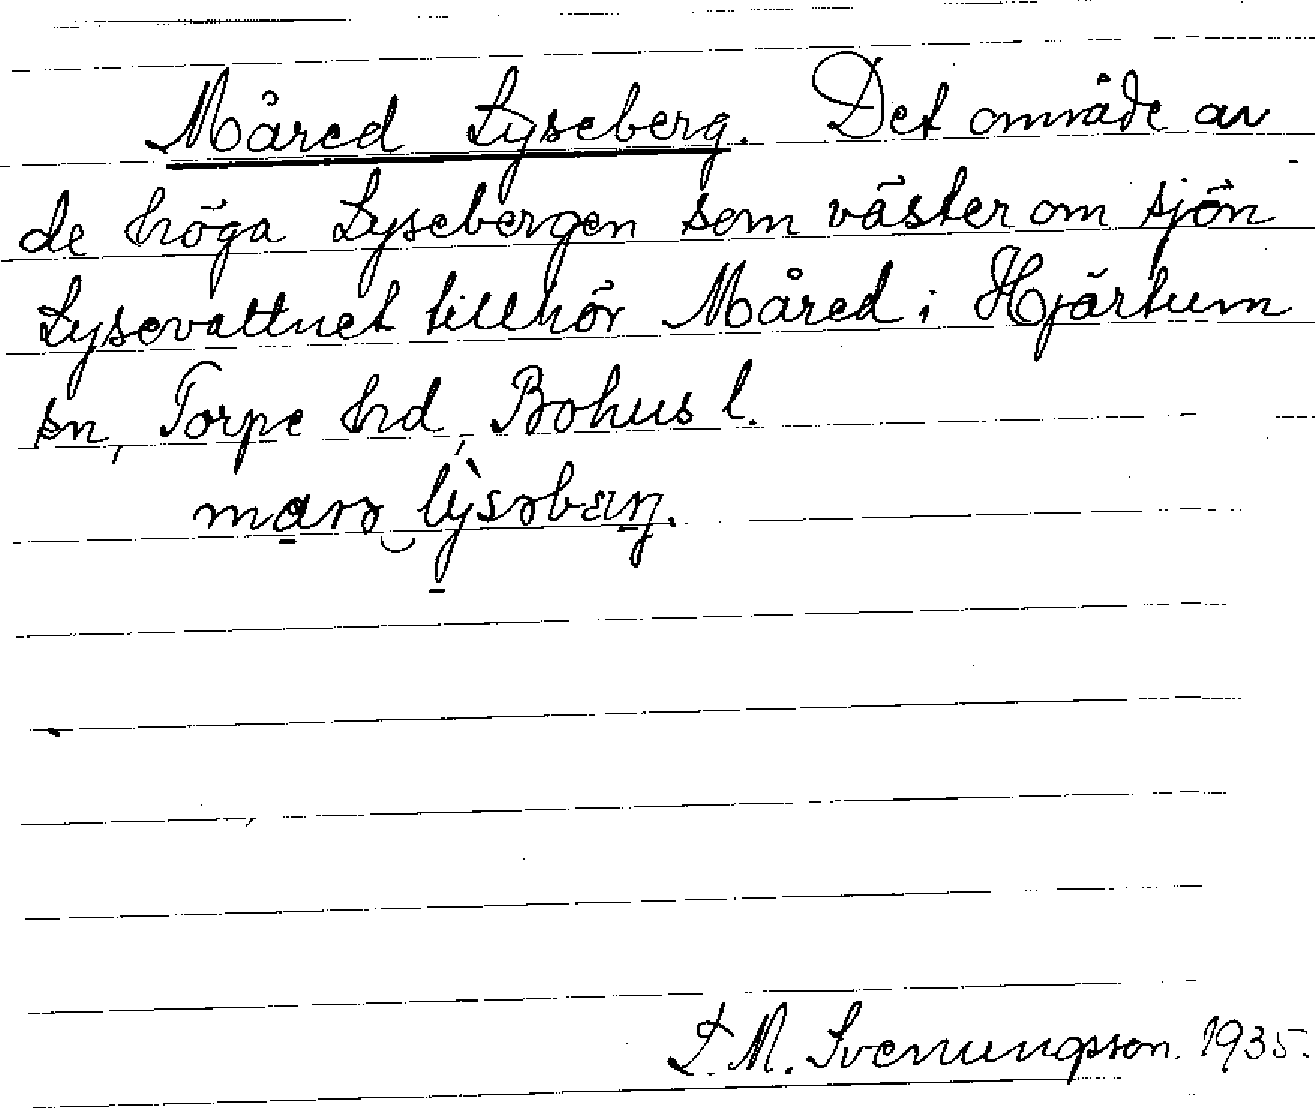 Måred Lyseberg. Det område av
de höga Lysebergen som väster om sjön
Lysevattnet tillhör Måred i Hjärtum
sn, Torpe hd, Bohus l.
L. M. Svenungsson. 1935.